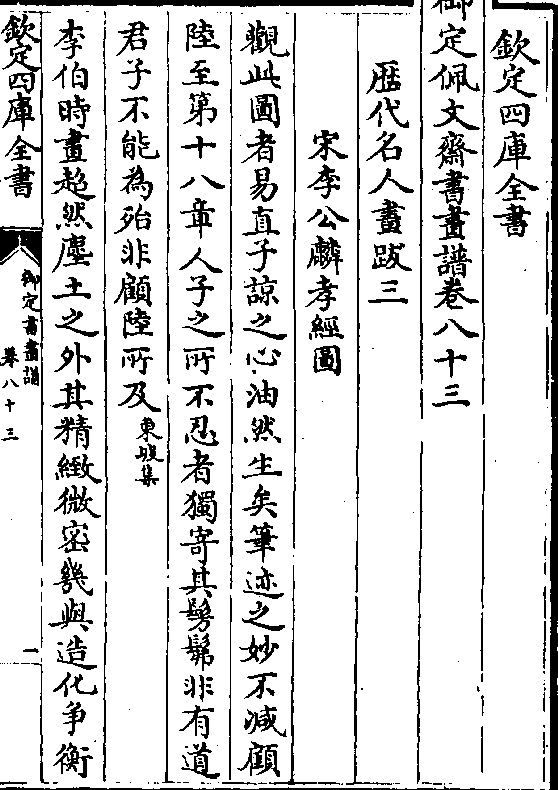 欽定四庫全書
御定佩文齋書畫譜卷八十三
歷代名人畫跋三
宋李公麟孝經圖
觀此圖者易直子諒之心油然生矣筆迹之妙不減顧
陸至第十八章人子之所不忍者獨寄其髣髴非有道
君子不能為殆非顧陸所及東坡集
李伯時畫超然塵土之外其精緻微密幾與造化争衡
欽定四庫全書
御定書畫譜
卷八十三
一